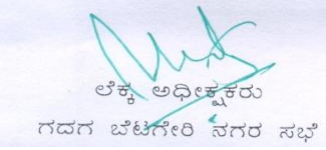 ಲೆಕ್ಕ ಅಧೀಕ್ಷಕರು
ಗದಗ ಬೆಟಗೇರಿ ನಗರ ಸಭೆ